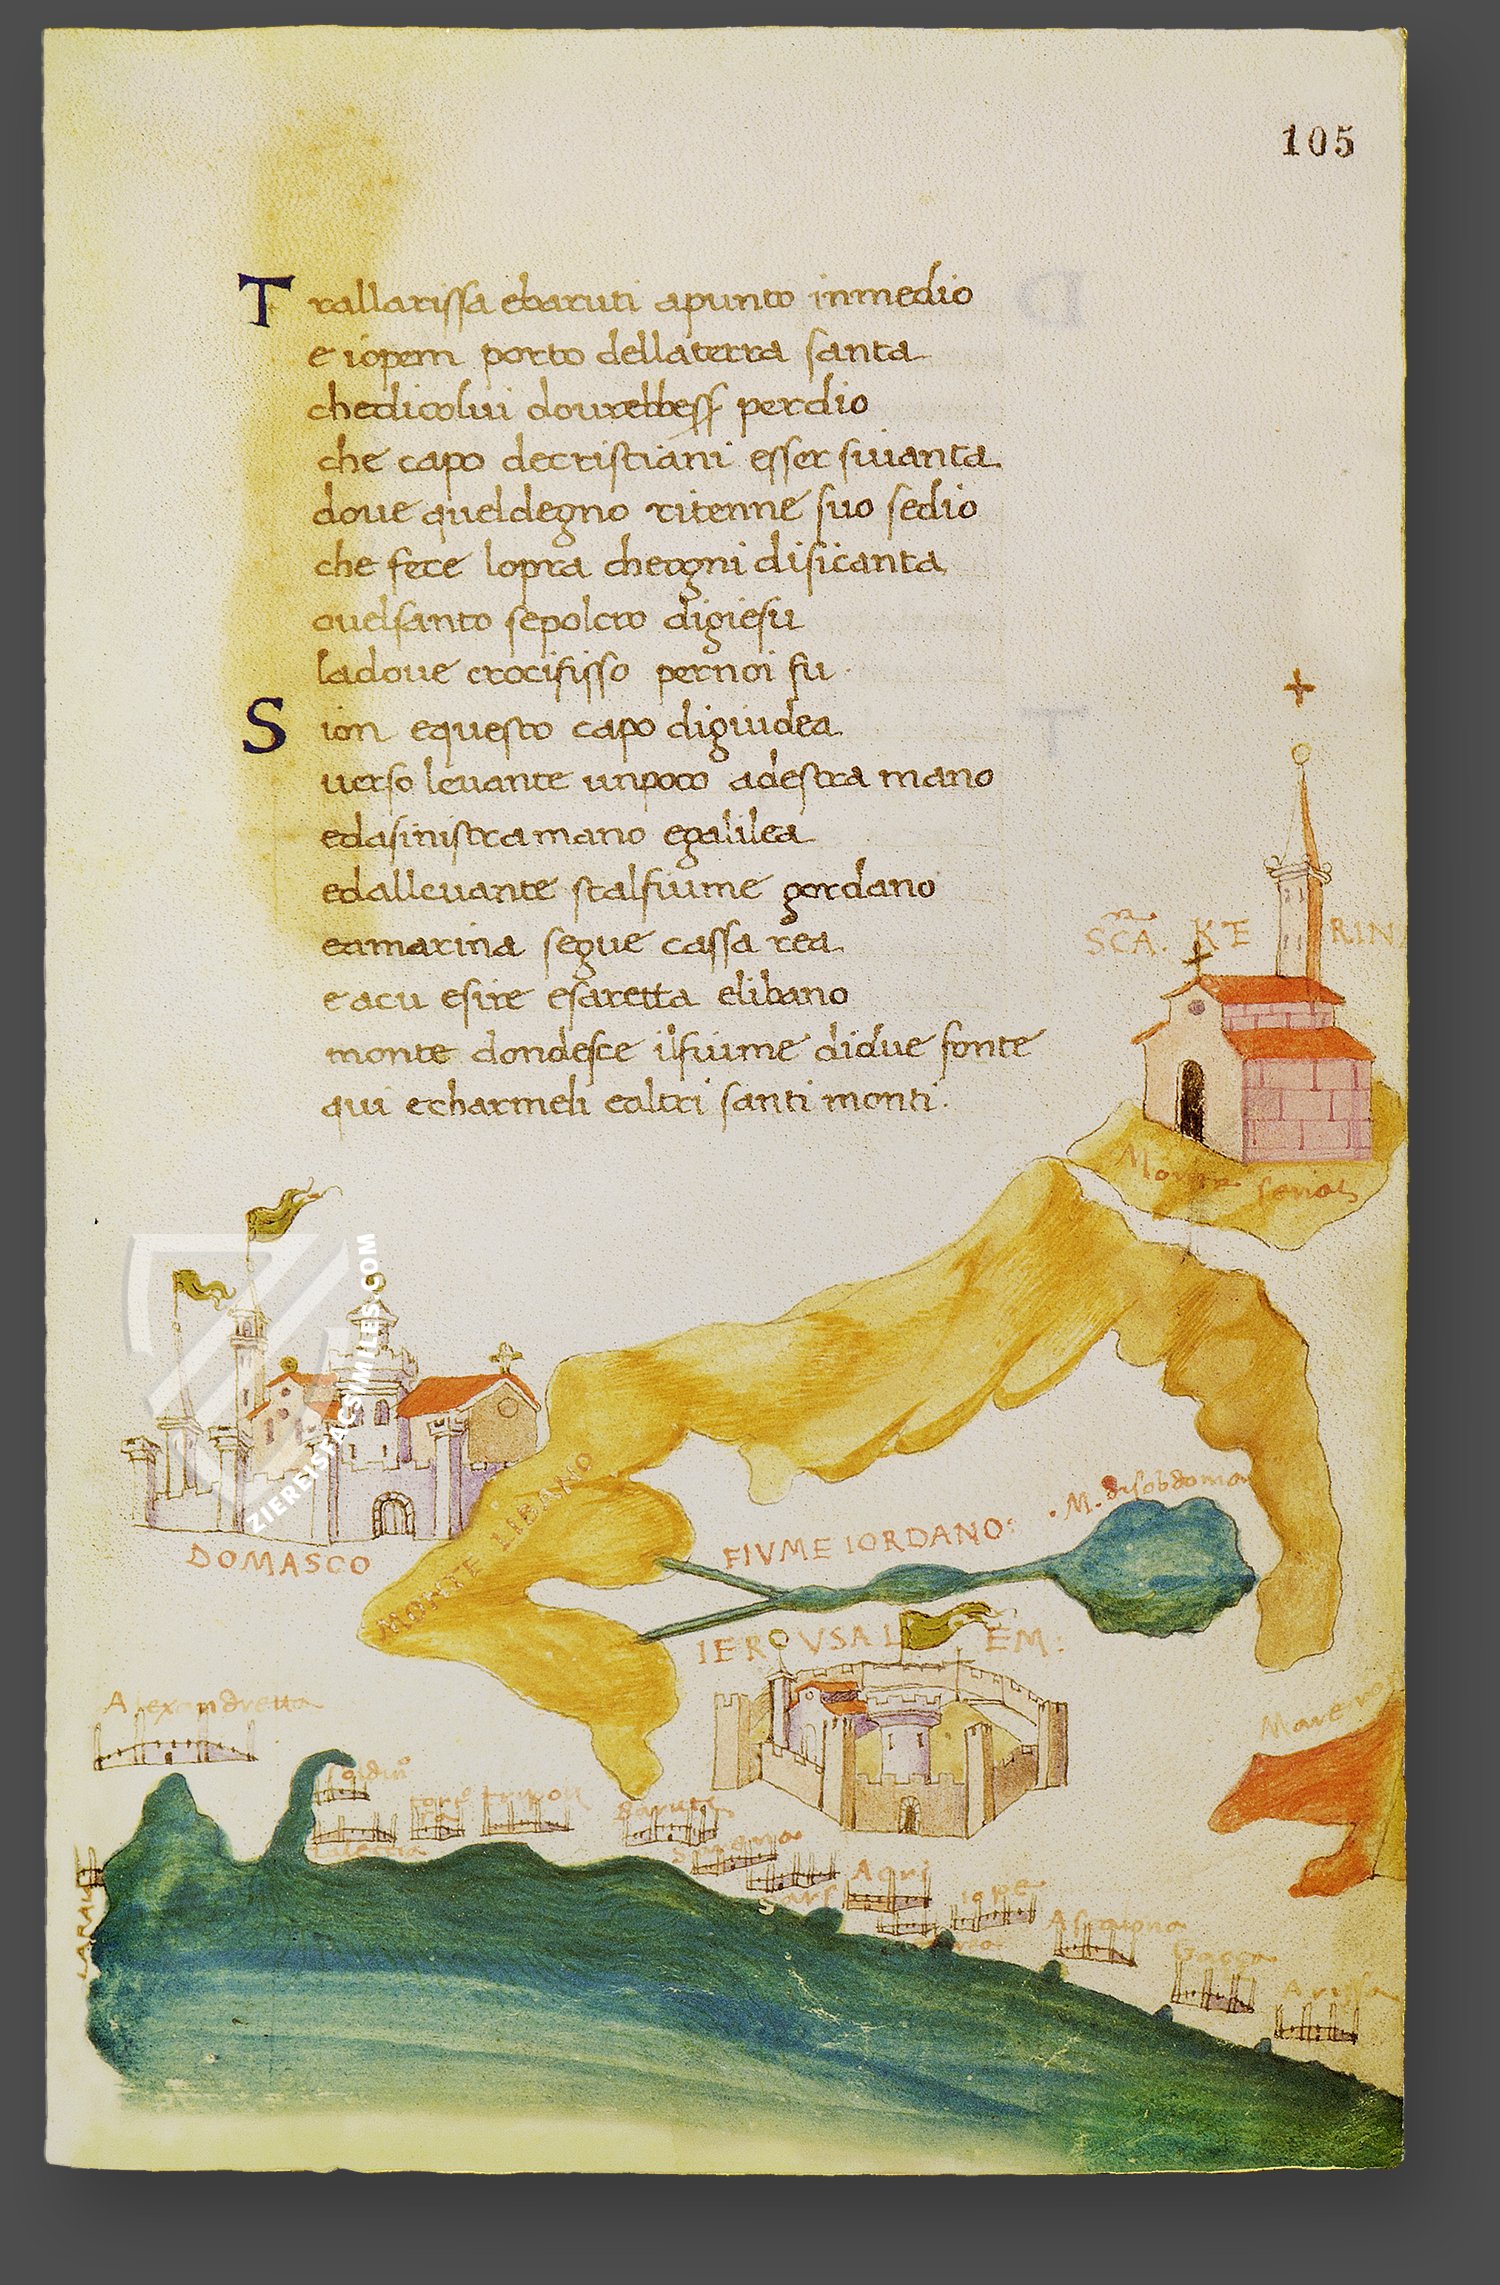 105
Trallarissa ebaruti apunto inmedio
e iopem porto dellaterra santa
chedicolui dovrebbess perdio
che capo decristiani esser siuanta
doue queldegno ritenne suo sedio
che fece lopra cheogni disicanta
quelsanto sepolcro digiesu
ladoue crocifisso pernoi fu
Sion equesto capo digiudea
uerso leuante unpoco adestra mano
edasinistra mano egalilea
edalleuante stalfiume gordano
eamarina segue cassa rea
e acu esire esaretta elibano
monte dondesce ilfiume didue fonte
qui echarmeli ealtri santi monti
SCA. KE RIN
Monte
DOMASCO
MONTE LIBANO
FIVME IORDANO:
IEROVSAL EM:
Alexandretta
tripoli
Baruti
Mare
Acri
iope
Ascalona
Gacca
Arissa
ZIEREISFACSIMILES.COM